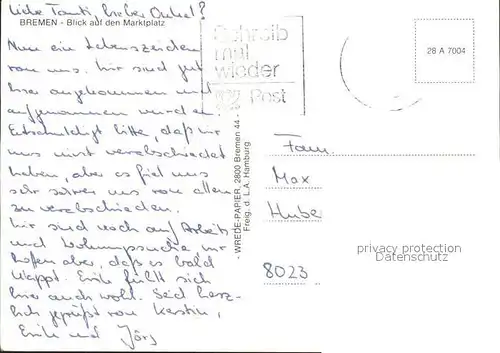 Liebe Tante, lieber Onkel!
BREMEN - Blick auf den Marktplatz
Nun ein Lebenszeichen
von uns. Wir sind gut
hier angekommen und
aufgenommen worden.
Entschuldigt bitte, daß wir
uns nicht verabschiedet
haben, aber es fiel uns
sehr schwer uns von allen
zu verabschieden.
Wir sind noch auf Arbeits
und Wohnungssuche wir
hoffen aber, daß es bald
klappt. Emile fühlt sich
hier auch wohl. Seid herz-
lich gegrüßt von Kerstin,
Emile und Jörg
Schreib
mal
wieder
Post
28 A 7004
- WREDE-PAPIER, 2800 Bremen 44 -
Freig. d. L.A. Hamburg
Fam.
Max
Hube
8023
privacy protection
Datenschutz